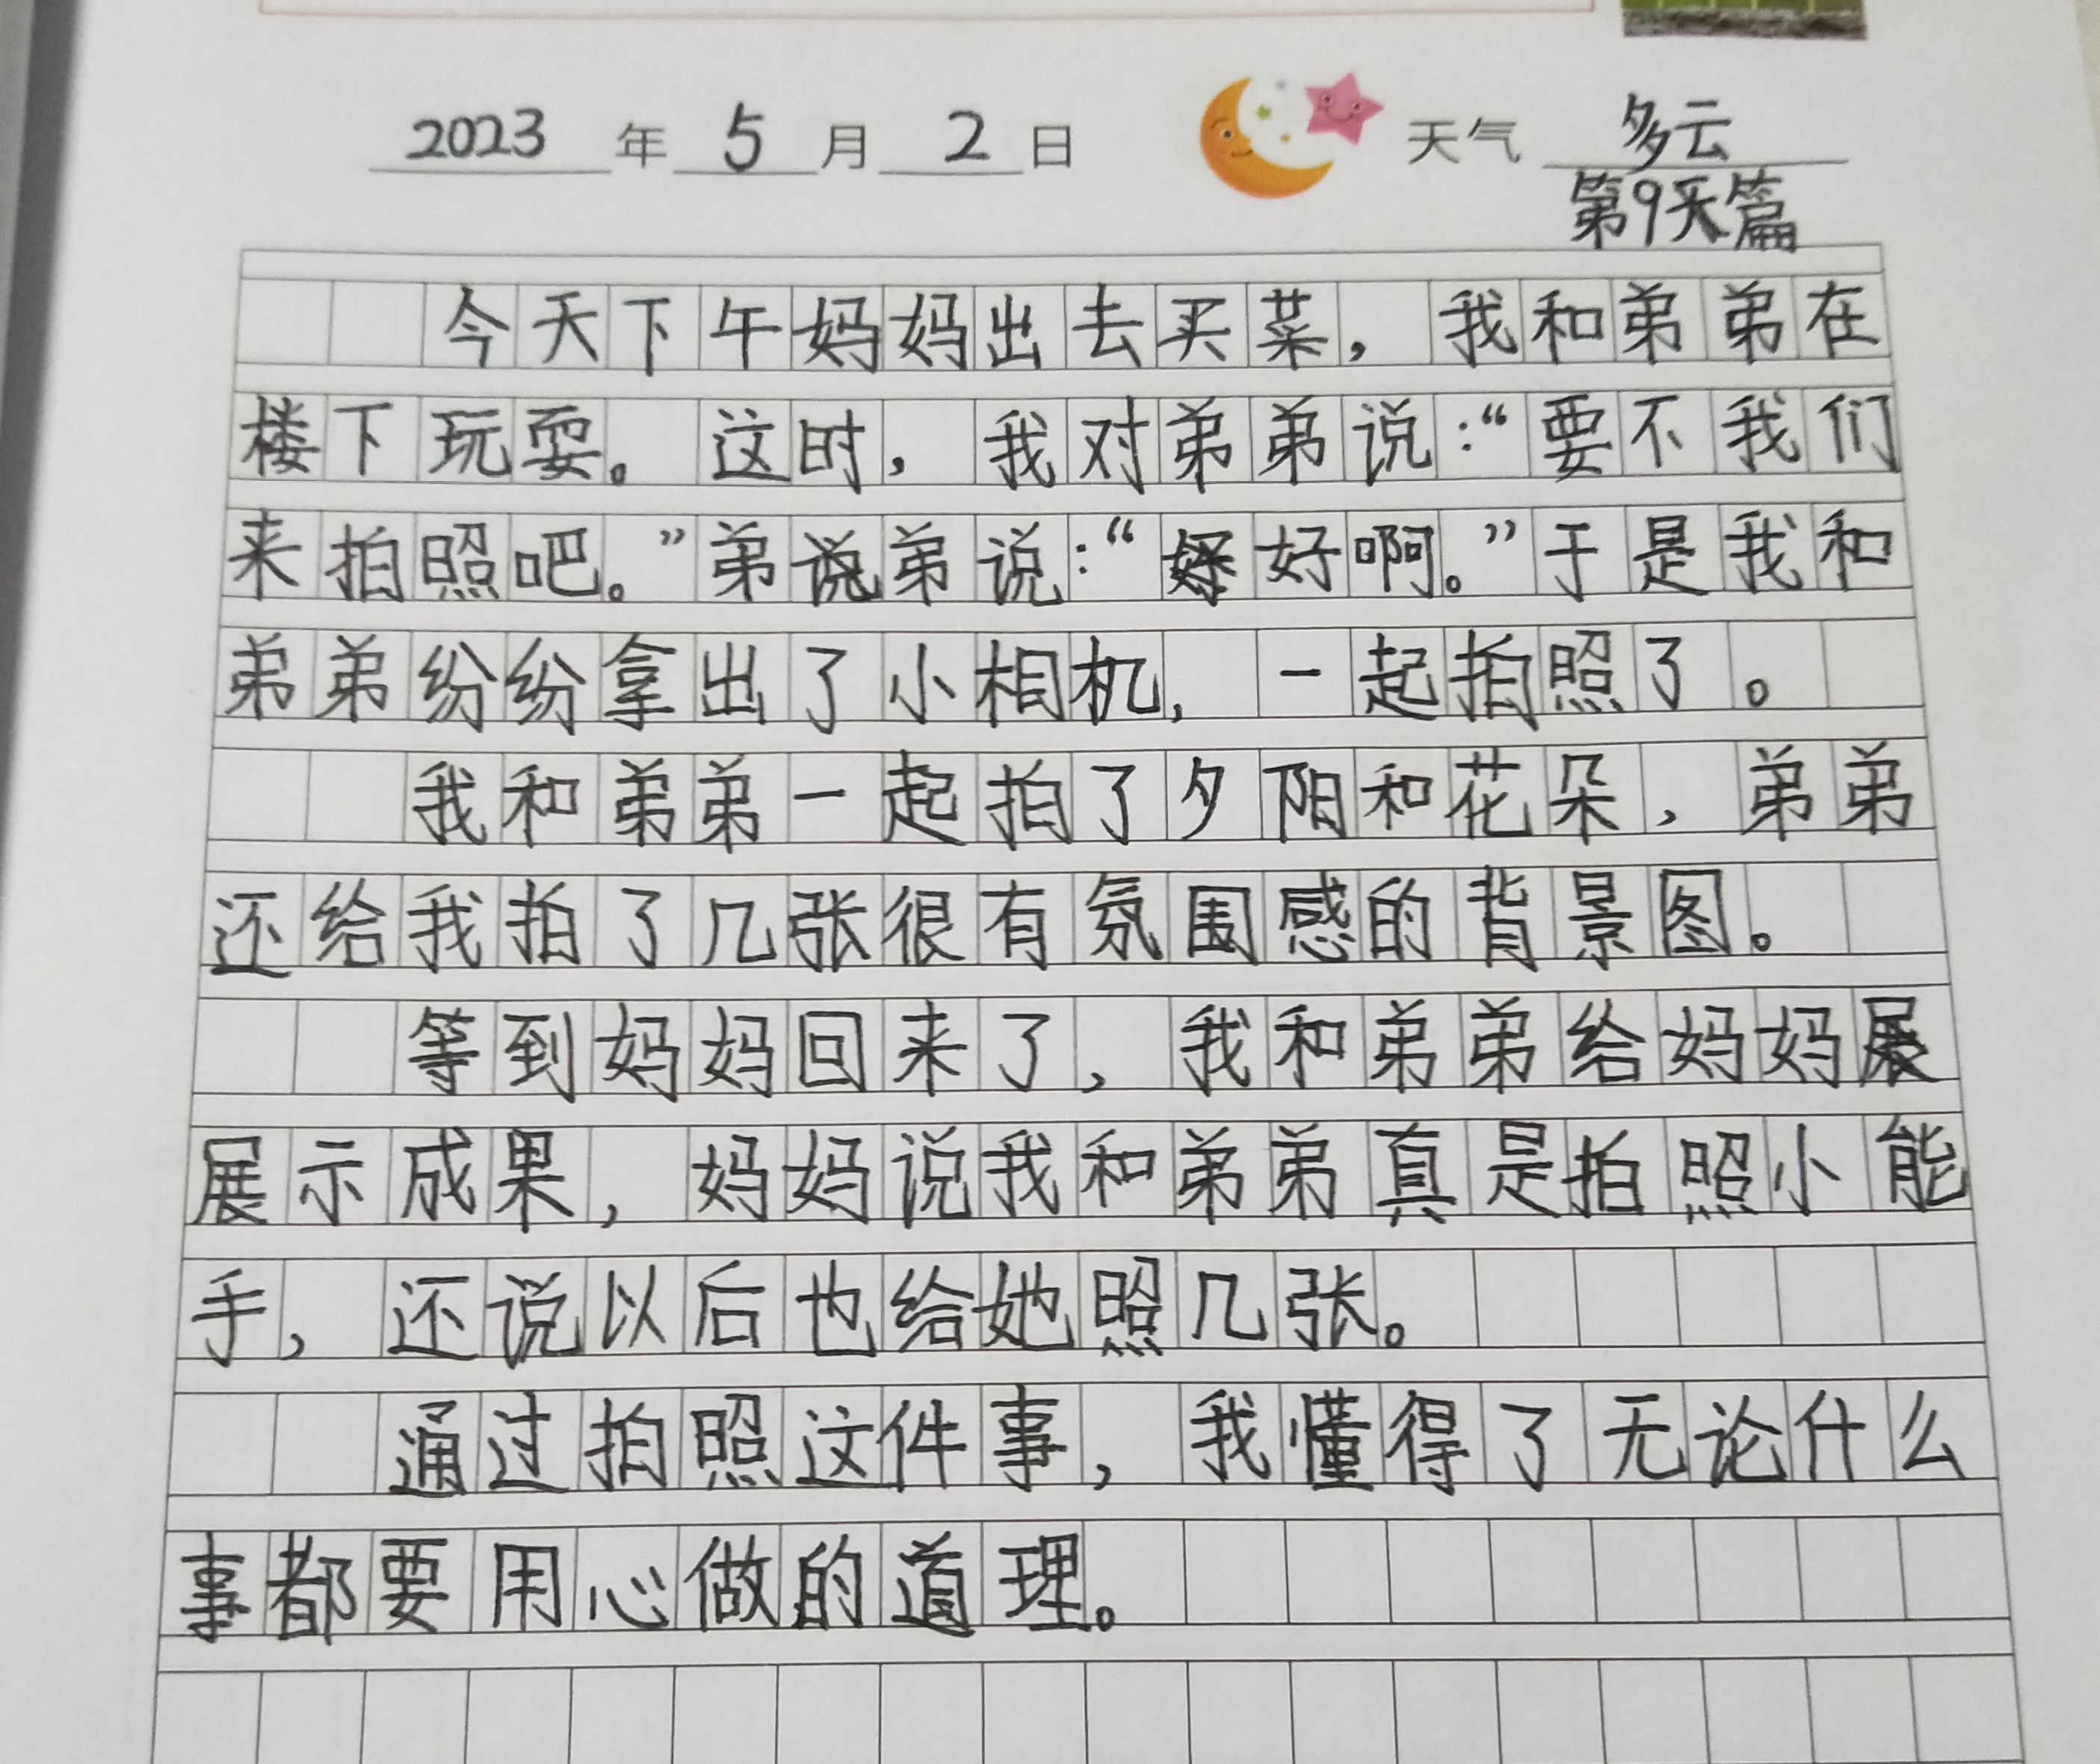 2023年5月2日 天气 多云
第9篇
今天下午妈妈出去买菜，我和弟弟在
楼下玩耍。这时，我对弟弟说：“要不我们
来拍照吧。”弟弟说：“好啊。”于是我和
弟弟纷纷拿出了小相机，一起拍照了。
我和弟弟一起拍了夕阳和花朵，弟弟
还给我拍了几张很有氛围感的背景图。
等到妈妈回来了，我和弟弟给妈妈
展示成果，妈妈说我和弟弟真是拍照小能
手，还说以后也给她照几张。
通过拍照这件事，我懂得了无论什么
事都要用心做的道理。